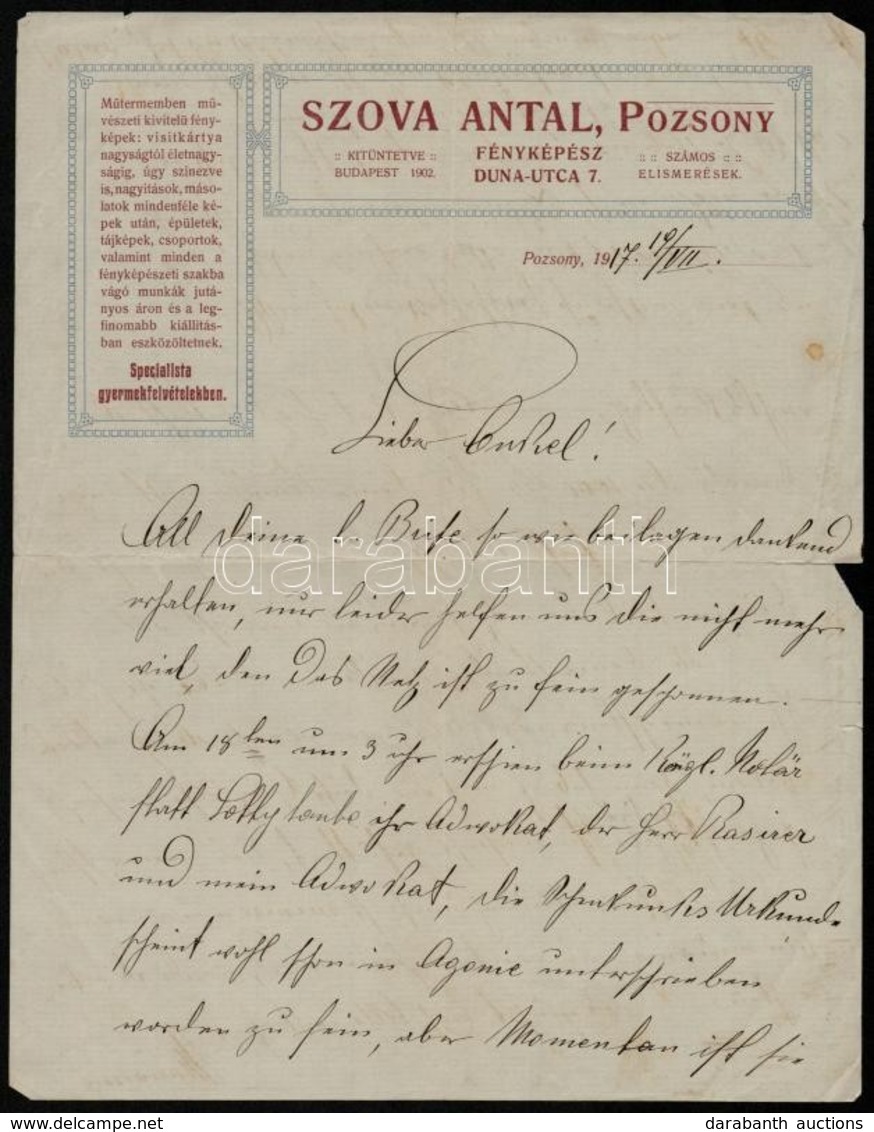 Műtermemben mű-
vészeti kivitelű fény-
képek: visitkártya
nagyságtól életnagy-
ságig, úgy szinezve
is, nagyitások, máso-
latok mindenféle ké-
pek után, épületek,
tájképek, csoportok,
valamint minden a
fényképészeti szakba
vágó munkák jutá-
nyos áron és a leg-
finomabb kiállitás-
ban eszközöltetnek.
Specialista
gyermekfelvételekben.
SZOVA ANTAL, POZSONY
:: KITÜNTETVE ::
BUDAPEST 1902.
FÉNYKÉPÉSZ
DUNA-UTCA 7.
:: :: SZÁMOS :: ::
ELISMERÉSEK.
Pozsony, 1917. 19/VII.
Lieber Onkel!
All deine l. Briefe so wie beilagen dankend
erhalten, nur leider helfen uns die nicht mehr
viel, den das Netz ist zu fein gesponnen.
Am 18ten um 3 uhr erschien beim Köngl. Notär
statt Lottytante ihr Adwokat, der Herr Rasirer
und mein Adwokat, die Schenkunks Urkunde
scheint wohl schon in Agonie unterschrieben
worden zu sein, aber Momentan ist sie
darabanth
darabanth auctions